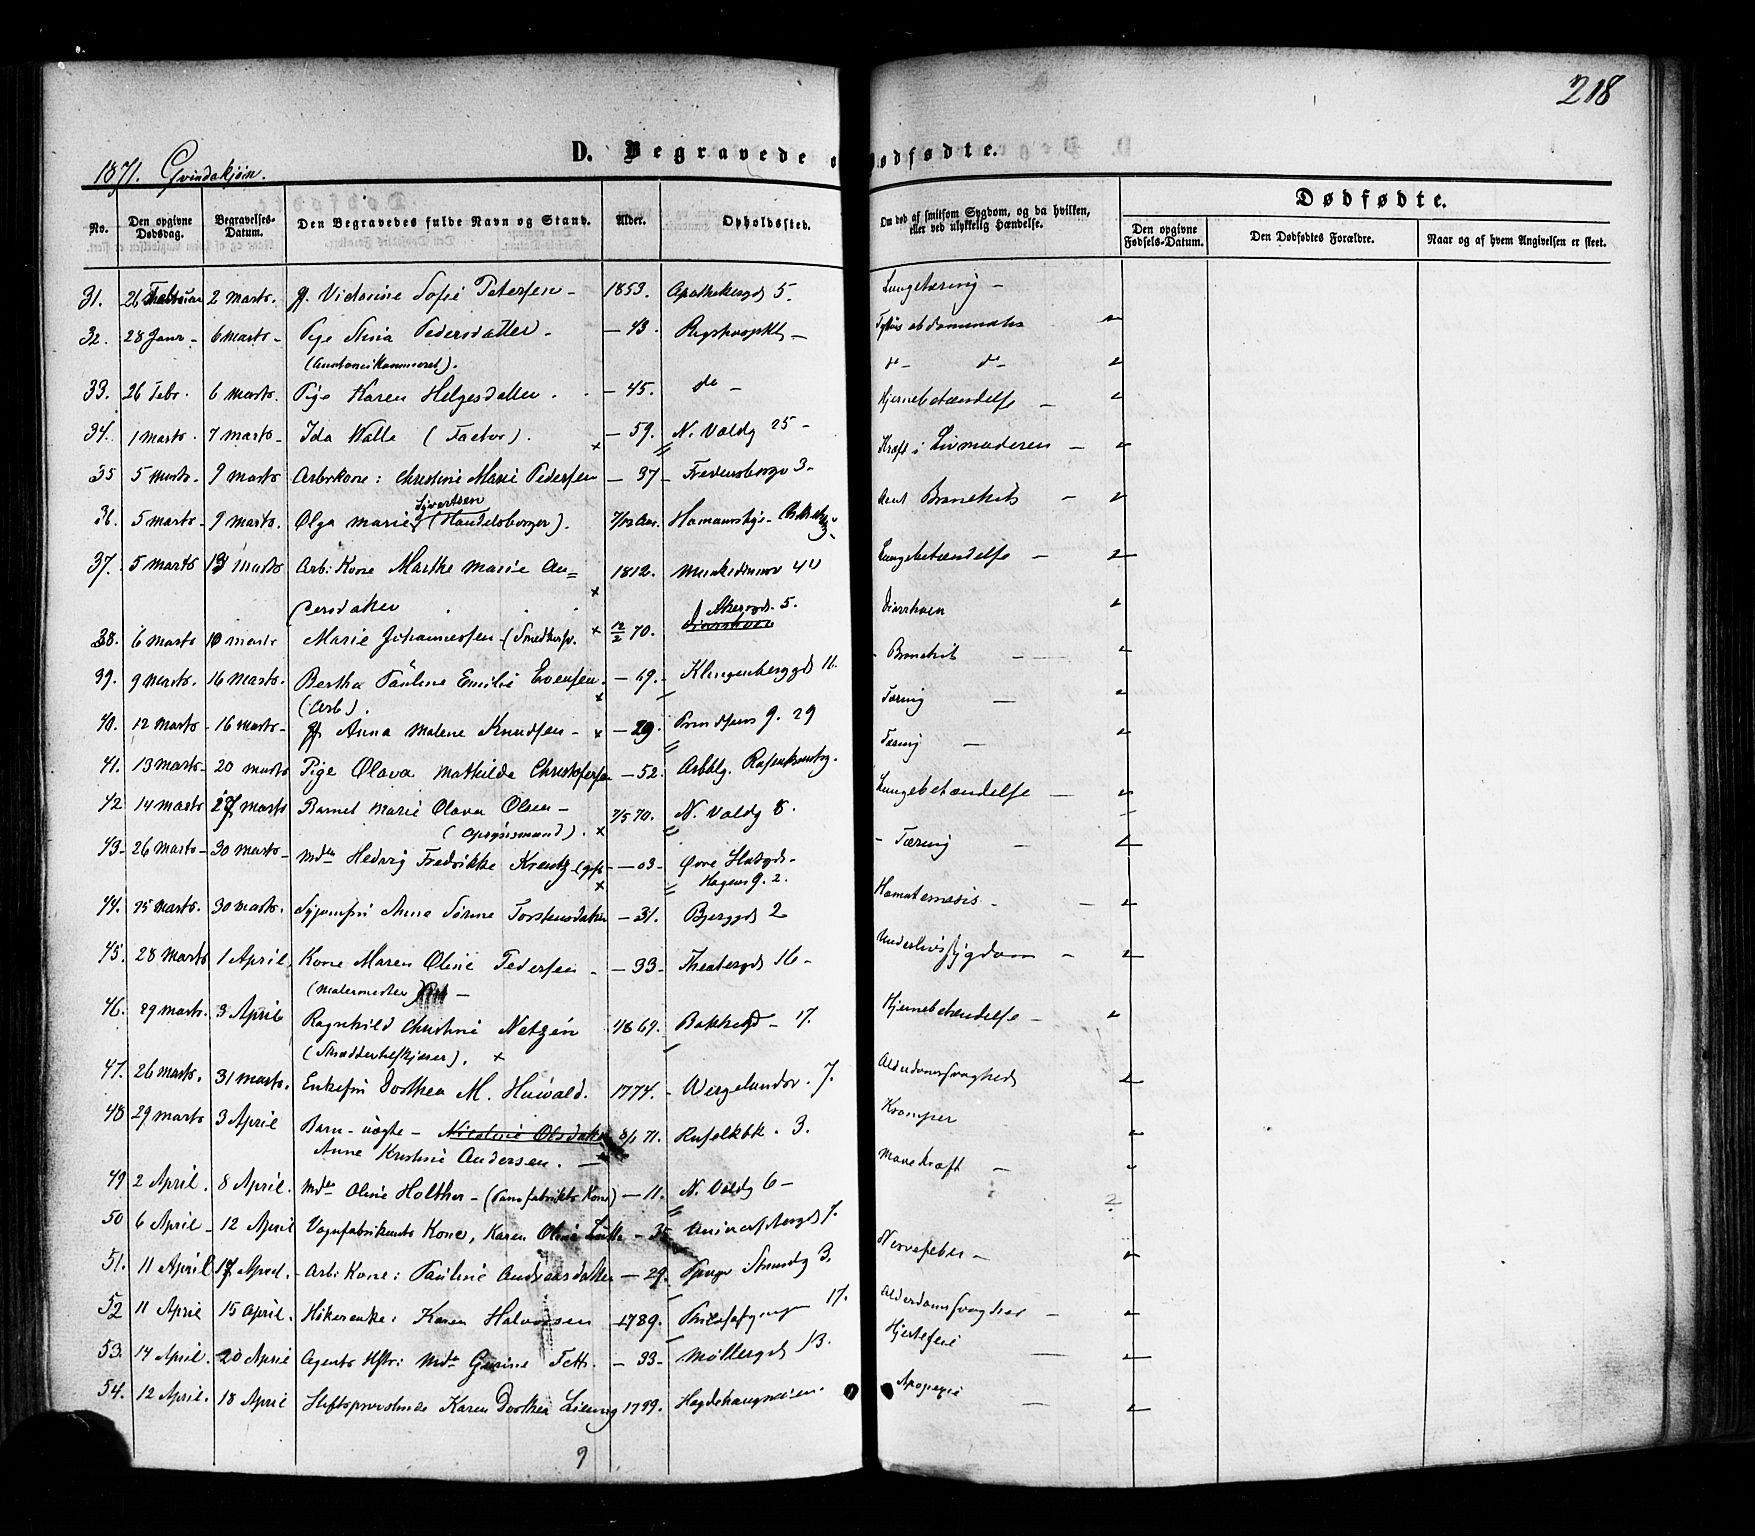 218
1871. Qvindekjøn.
D. Begravede o
Dødfødte.
No.
Den opgivne Dødsdag.
Begravelses-Datum.
Den Begravedes fulde Navn og Stand.
Alder.
Opholdssted.
Om død af smitsom Sygdom, og da hvilken, eller ved ulykkelig Hændelse.
Dødfødte.
Den opgivne Fødsels-Datum.
Den Dødfødtes Forældre.
Naar og af hvem Angivelsen er skeet.
31. 26 Februar 2 Marts. Victorine Sofie Petersen - 1853. Apothekergd 5. Lungetæring -
32. 28 Janr - 6 Marts - Pige Pedersdatter - - 43. Rigshospit - Tyfus abdominalis
33. 26 Febr. 6 Marts. Pige Karen Helgesdatter. - 45. do - do - do -
34. 1 Marts. 7 Marts - Ida Walle (Factor). - 59. N. Voldg 25 - Hjernebetændelse -
35 5 Marts - 9 Marts Arb. kone: Christine Marie Pedersen - 37 - Fredensborgv 3 - Kræft i Livmoderen -
36. 5 Marts - 9 Marts. Olga Marie Syvertsen (Handelsborger). 7/12 Aar. Homansby - Acut Bronchit -
37. 5 Marts 13 Marts Arb: Kone Marthe Marie An= 1812. Munkedamsv 40 Lungebetændelse -
dersdatter
38. 6 Marts 10 Marts Marie Johannessen - (Smedkesv. 12/2 70. Akersgd. 5. Diarrhoea Diarrhoen
39. 9 Marts. 16 Marts. Bertha Pauline Emilie Evensen. - 69. - Klingenberggd 11. - Bronchit -
(Arb).
40. 12 Marts - 16 Marts - Anna Malene Knudsen - - 29. 9. 29 Tæring -
41. 13 Marts - 20 Marts Pige Olava Mathilde Christofersen - 52. Arbblg. Tæring -
42 14 Marts 27 Marts Barnet Marie Olava Olsen - 7/5 70. N. Voldg 8. Lungebetændelse -
(Opsynsmand).
43 - 26 Marts - 30 Marts - Mde Hedvig Fredrikke - 03 - Øvre Slotsgd - - Tæring -
Hagens g. 2.
44. 25 Marts. 30 Marts. Syjomfru Anne Torstensdatter - 31. Bjerggd 2 Hæmatemesis -
45. 28 Marts 1 April Kone Maren Oline Pedersen - - 33 - Theatergd 16 - Underlivssygdom -
(Malermester) -
46. 29 Marts. 3 April Ragnhild Christine Netzén 1/8 69. Bakkegd - 17. Hjernebetændelse -
(Skræddertilskjærer).
47. 26 Marts. 31 Marts. Enkefru Dorthea M. Huwald. 1774. - Wergelandsv. 7. Alderdomssvaghed
48 29 Marts 3 April Barn - uægte - Nicoline Olsdatter 8/1 71. Rufelkbk. 3. Kramper
Anne Kristine Andersen. -
49 2 April. 8 April. Mde Oline Holther - - 11. N. Voldg 6 - Mavekræft -
50 6 April - 12 April Vognfabrikants Kone, Karen Oline - 35 Universitetsgd 7.
51. 11 April 17 April. - Arb: Kone: Pauline Andreasdatter - 29. Strandg 3. Nervefeber -
52 11 April 15 April. Høkerenke: Karen Halvorsen 1789. Pilestg 17. Alderdomssvaghed -
53. 14 April. 20 April Agents Hstr: Mde Gurine Feth. - 33 - Møllergd 13. Hjertefeil
54. 12 April. 18 April Karen Dorthea 1799. Hegdehaugsveien. Apoplexie
9